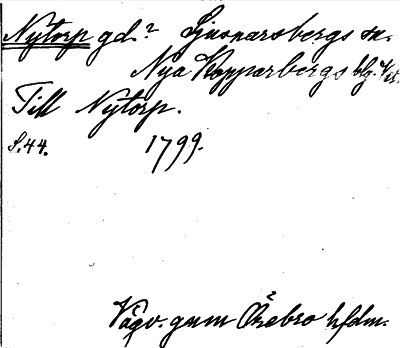 Nytorp gd.? Ljusnarsbergs sn.
Nya Kopparbergs blg. Vstm.
Till Nytorp.
S.44. 1799.
Vägv. genm Örebro hfdm.